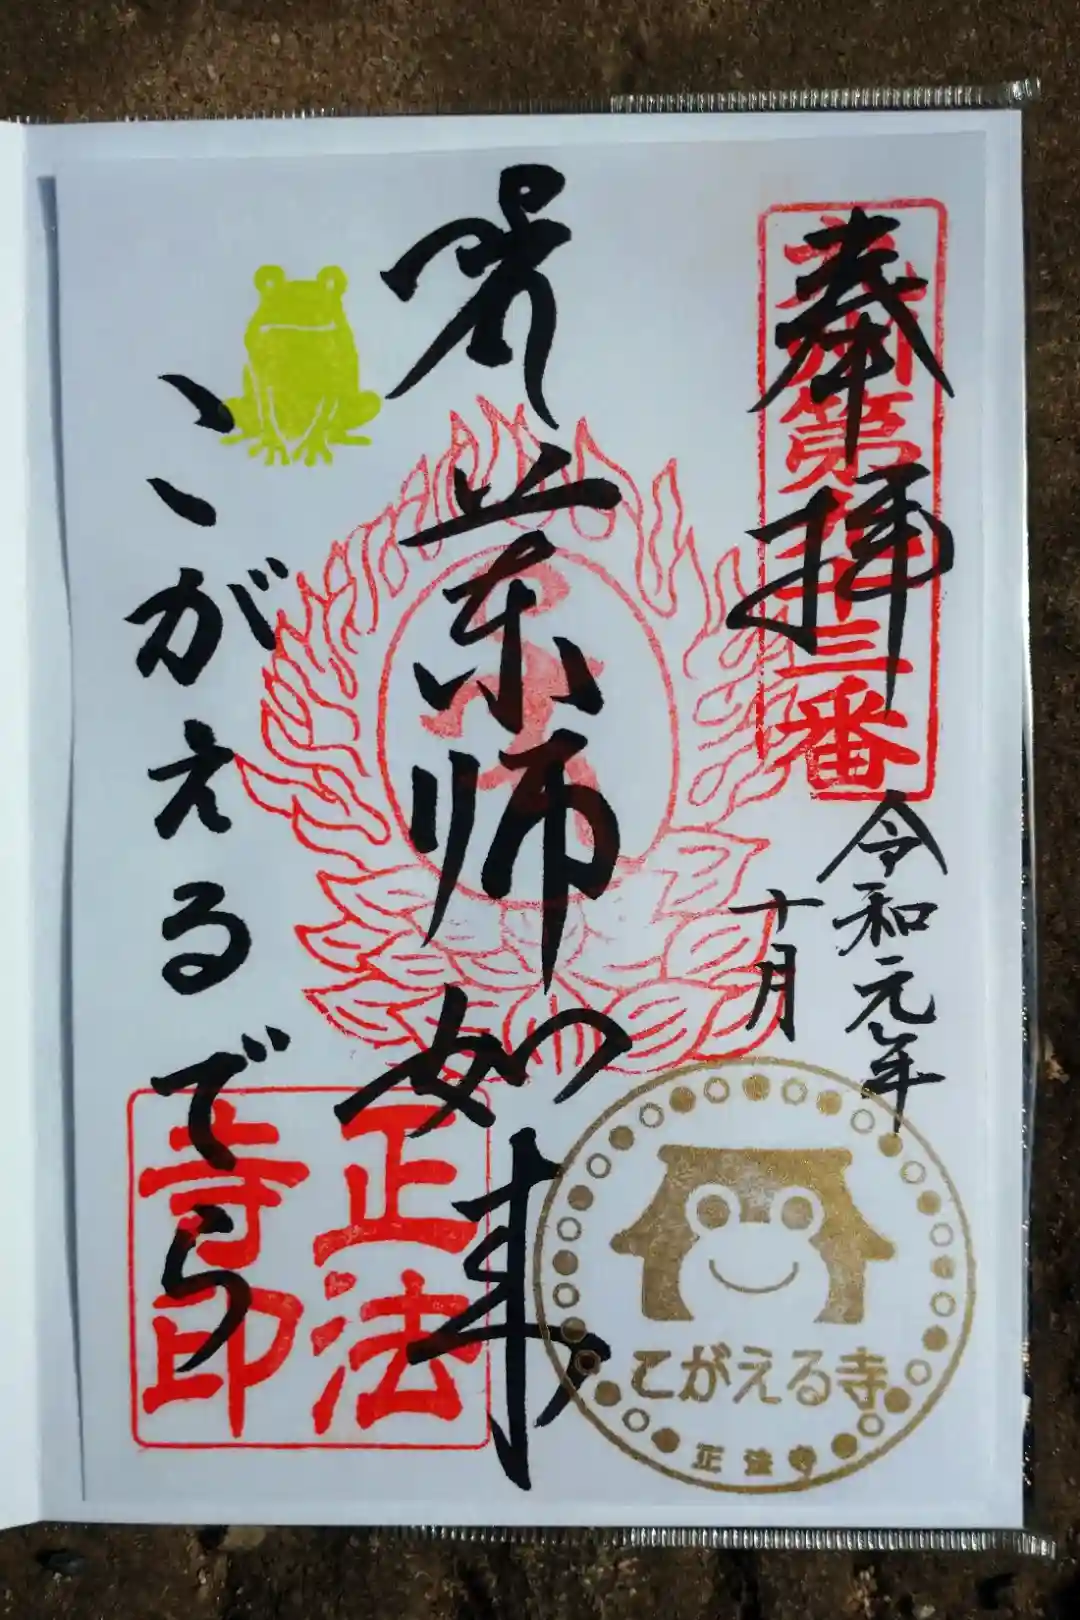 奉拝
令和元年
十月
薬師如来
こがえるでら
正法
寺印
こがえる寺
正法寺